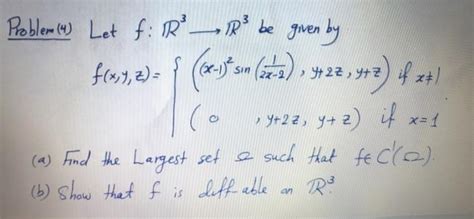 Problem (4) Let f: ℝ³ → ℝ³ be given by
f(x,y,z) = { ((x-1)² sin (1/(2x-2)), y+2z, y+z) if x≠1
( 0 , y+2z, y+z) if x=1
(a) Find the Largest set Ω such that f∈C'(Ω).
(b) Show that f is diff-able on ℝ³.